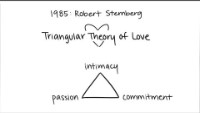 1985: Robert Sternberg
Triangular Theory of Love
intimacy
passion
commitment